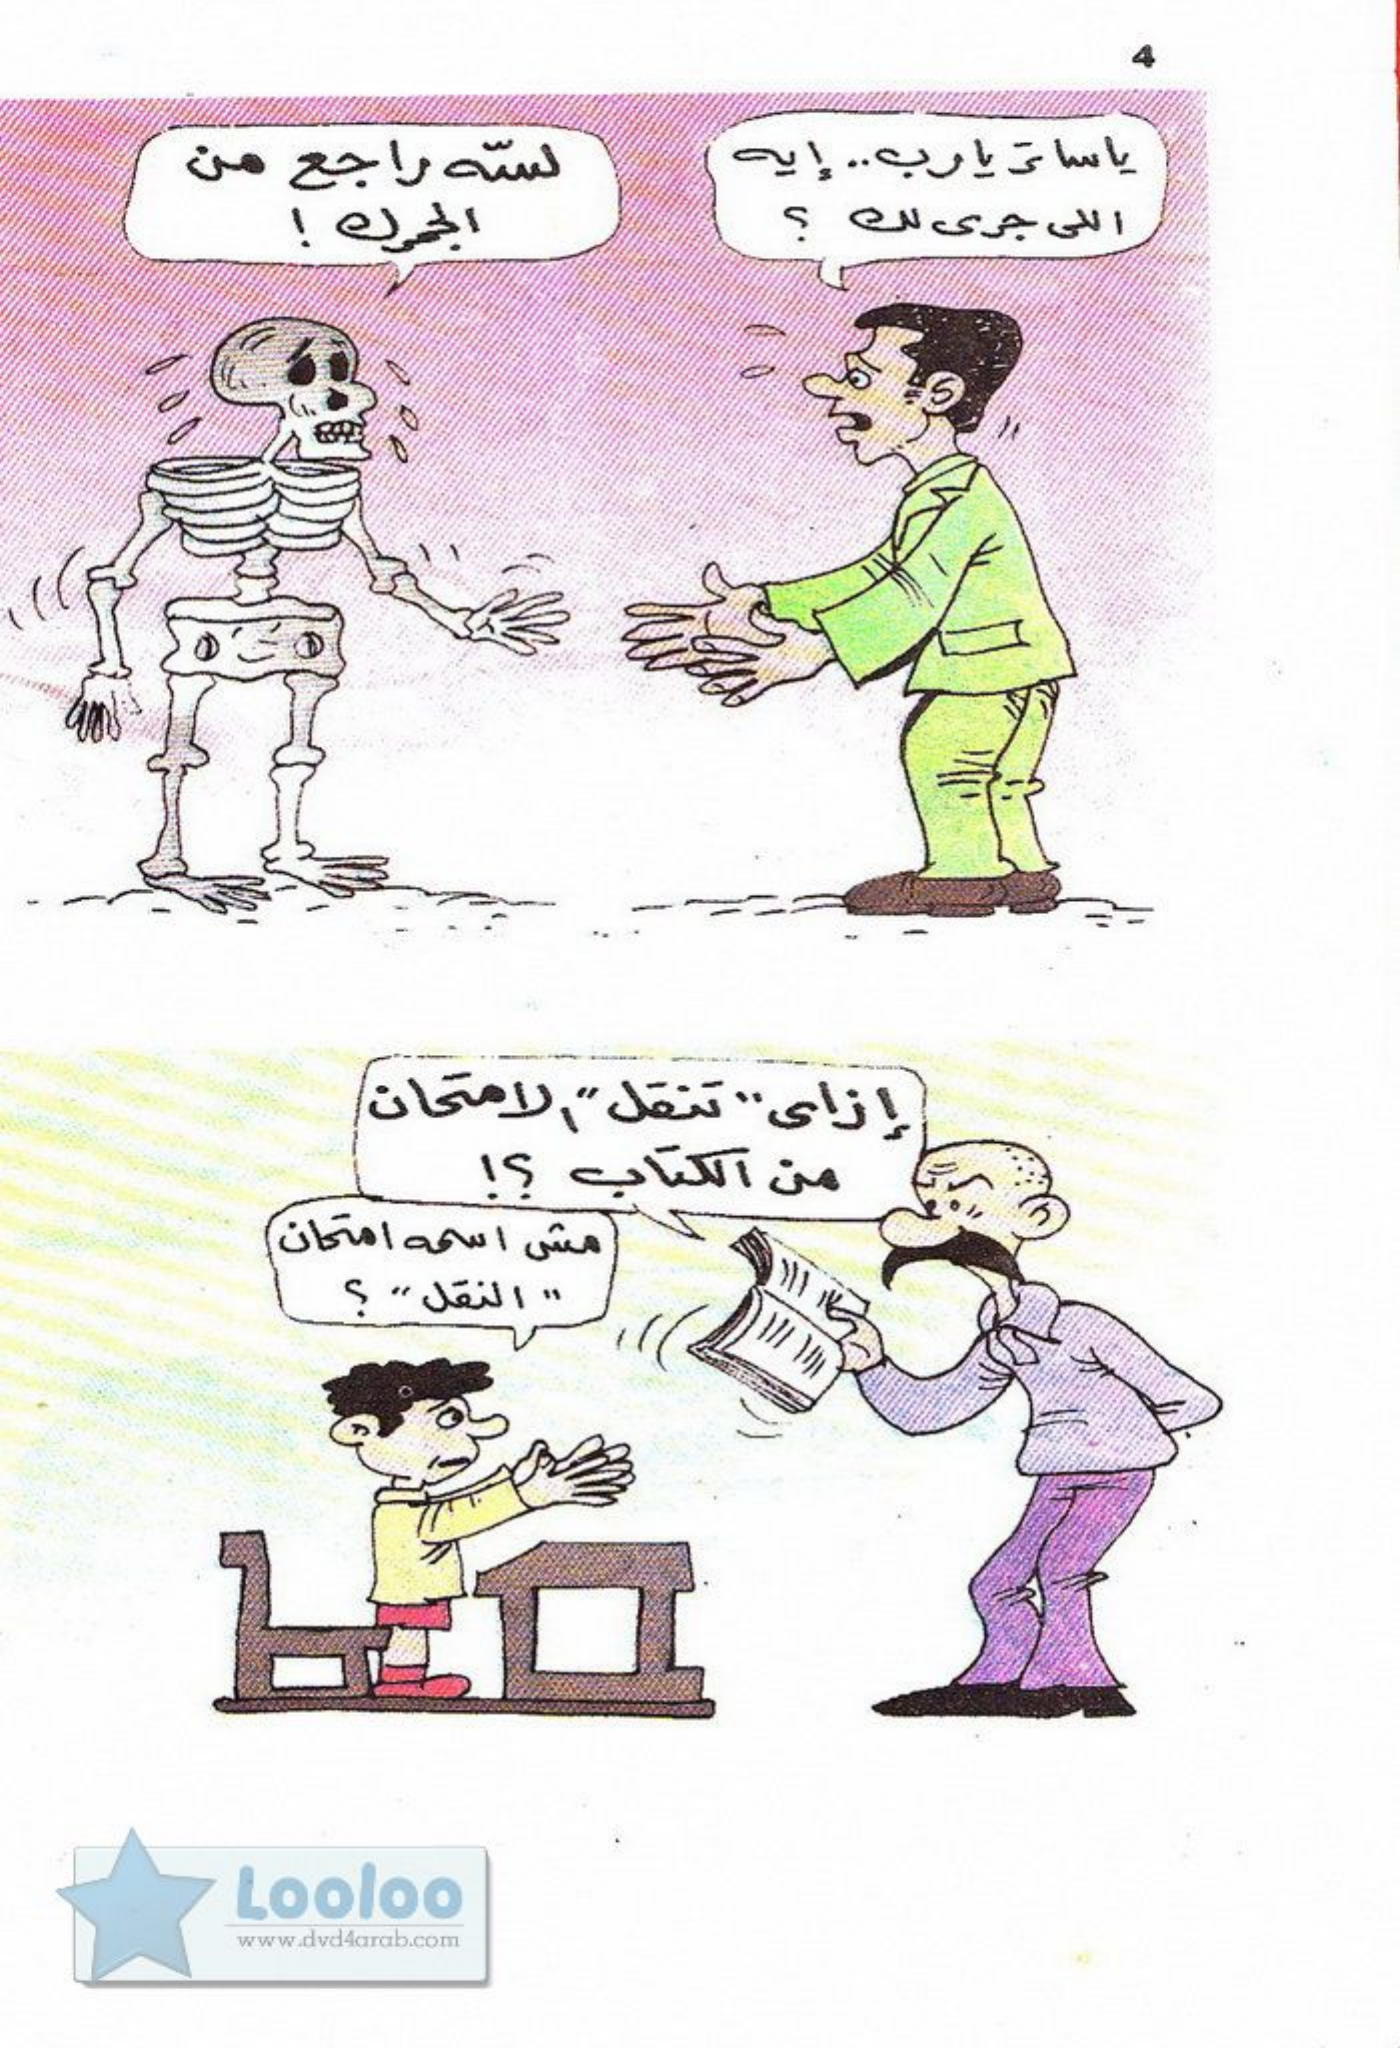 4
ياساتر يارب.. إيه
اللى جرى لك ؟
لسّه راجع من
الجمرك !
إزاى "تنقل" الامتحان
من الكتاب ؟!
مش اسمه امتحان
"النقل" ؟
Looloo
www.dvd4arab.com